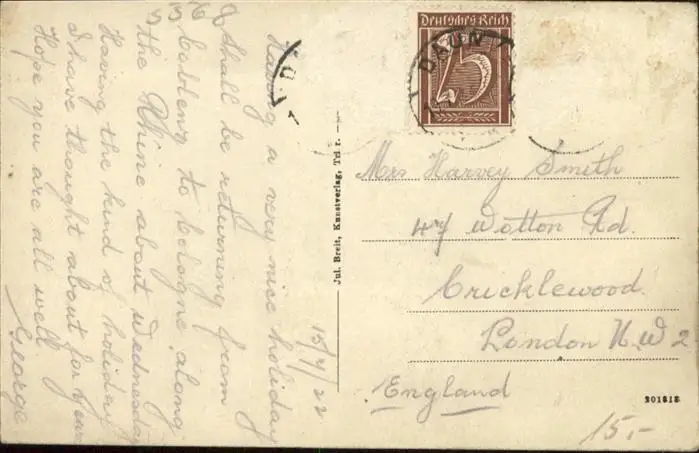 Deutsches Reich
25
DAUN
Mrs Harvey Smith
47 Wotton Rd.
Cricklewood.
London N.W 2
England
15,-
201818
Jul. Breit, Kunstverlag, Trier.
15/4/22
Having a very nice holiday
& shall be returning from
Coblenz to Cologne along
the Rhine about Wednesday
Having the kind of holiday
I have thought about for years
Hope you are all well
George